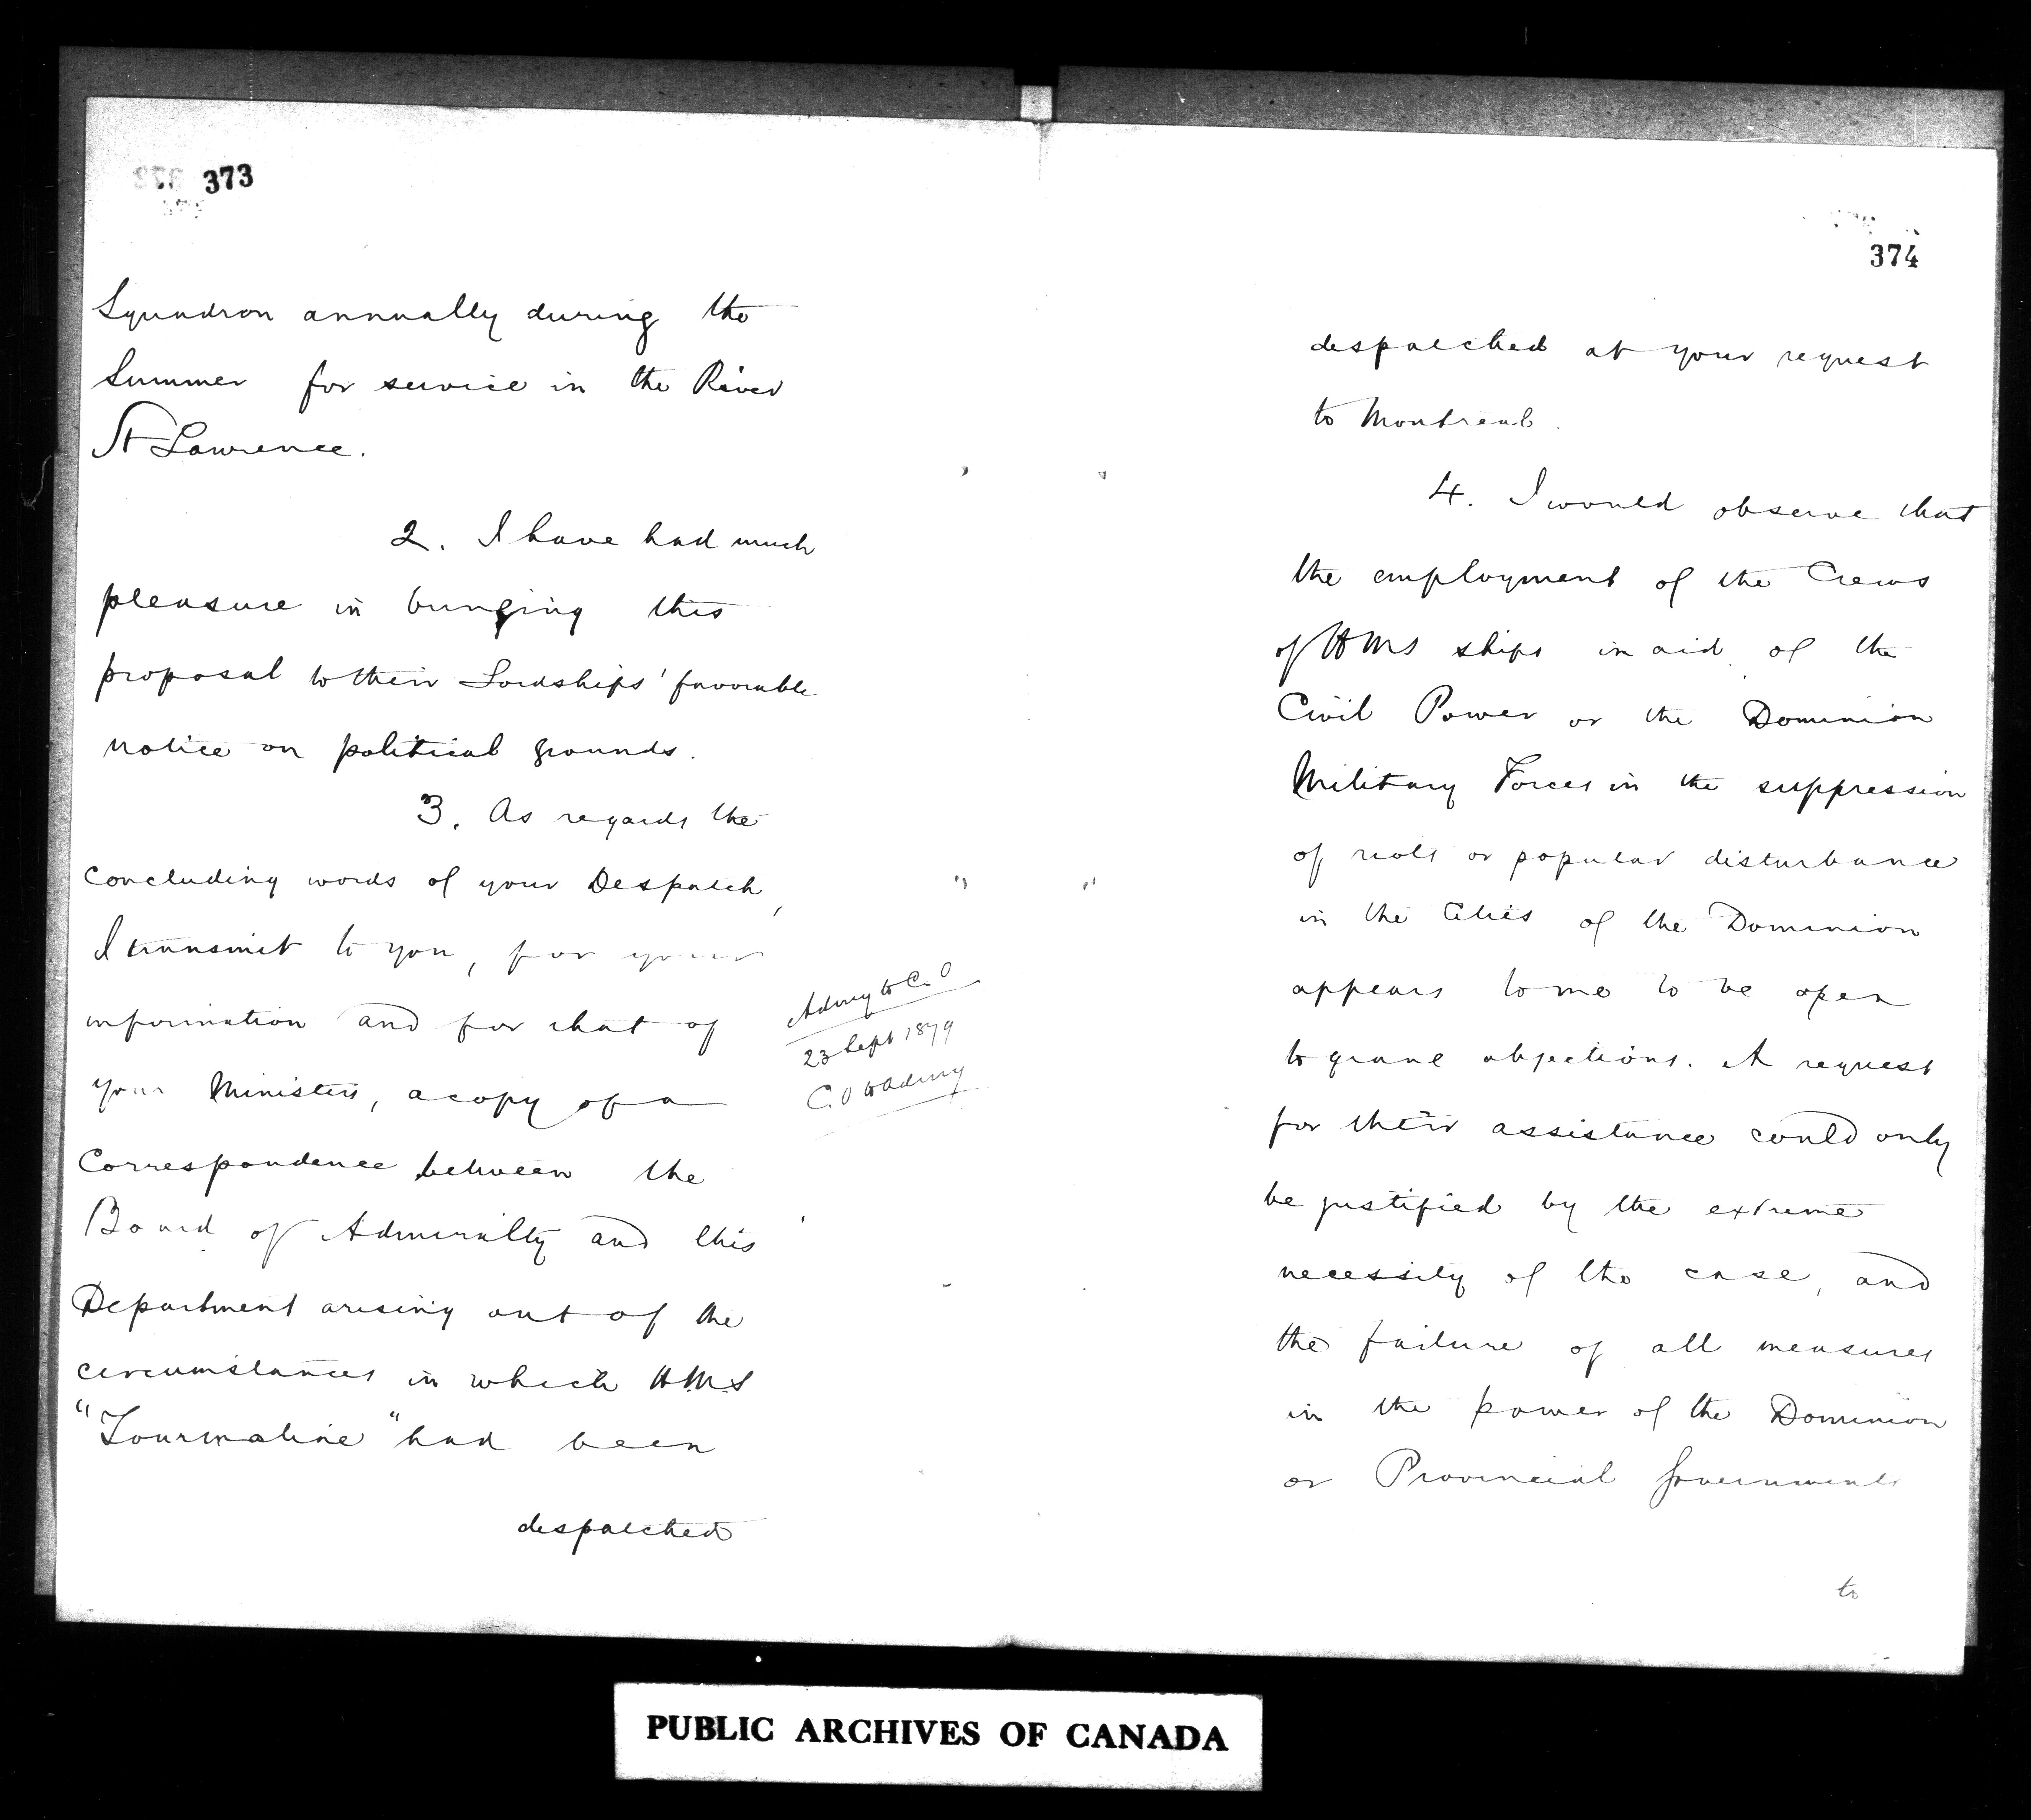 373
Squadron annually during the
Summer for service in the River
St Lawrence.
2. I have had much
pleasure in bringing this
proposal to their Lordships' favorable
notice on political grounds.
3. As regards the
concluding words of your Despatch,
I transmit to you, for your
information and for that of
your Ministers, a copy of a
Correspondence between the
Board of Admiralty and this
Department arising out of the
circumstances in which HMS
"Tourmaline" had been
despatched
Admy to C.O
23 Sept 1879
C.O to Admy
374
despatched at your request
to Montreal.
4. I would observe that
the employment of the Crews
of HMS ships in aid of the
Civil Power or the Dominion
Military Forces in the suppression
of riots or popular disturbance
in the Cities of the Dominion
appears to me to be open
to grave objections. A request
for their assistance could only
be justified by the extreme
necessity of the case, and
the failure of all measures
in the power of the Dominion
or Provincial Governments
to
PUBLIC ARCHIVES OF CANADA